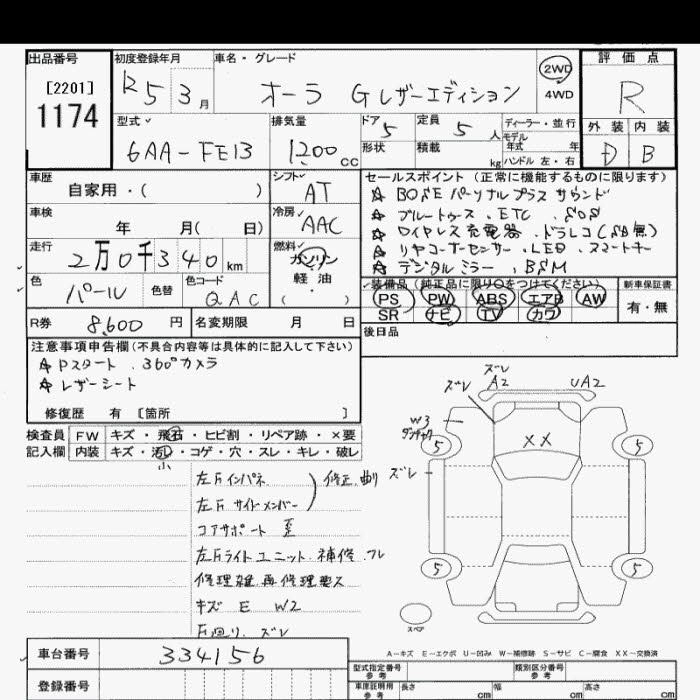 出品番号 初度登録年月 車名・グレード 評価点
[2201]
1174
R5 3月 オーラ Gレザーエディション 2WD 4WD R
型式 排気量 ドア 定員 ディーラー・並行 外装 内装
6AA-FE13 1200cc 5 5人 モデル年式 年 D B
形状 積載 kg ハンドル 左・右
車歴 シフト セールスポイント(正常に機能するものに限ります)
自家用・( ) AT
☆ BOSE パーソナルプラス サウンド
車検 冷房
☆ ブルートゥース、ETC、SOS
年 月( 日) AAC
☆ ワイヤレス充電器、ドラレコ(SD無)
走行 燃料
☆ リヤコーナーセンサー、LED、スマートキー
2万0千340km ガソリン
☆ デジタルミラー、BSM
色 色替 色コード 軽油
パール QAC ( )
装備品(純正品に限り○をつけてください) 新車保証書
PS PW ABS エアB AW 有・無
SR ナビ TV カワ
R券 8,600円 名変期限 月 日
後日品
注意事項申告欄(不具合内容等は具体的に記入して下さい)
☆ Pスタート、360°カメラ
☆ レザーシート
修復歴 有 [箇所 ]
検査員 FW キズ・飛石・ヒビ割・リペア跡・×要
記入欄 内装 キズ・汚レ・コゲ・穴・スレ・キレ・破レ
小
左Fインパネ
左Fサイドメンバー 修正、曲り
コアサポート 歪
左Fライトユニット、補修、フレ
修理雑、再修理要ス
キズ E W2
F廻り、ズレ
ズレ
ズレ A2 UA2
W3
XX
5 5
ズレ
5 5
スペア
A-キズ E-エクボ U-凹み W-補修跡 S-サビ C-腐食 XX-交換済
車台番号 334156
登録番号
型式指定番号 参考 類別区分番号 参考
車庫証明用 参考 長さ cm 幅 cm 高さ cm